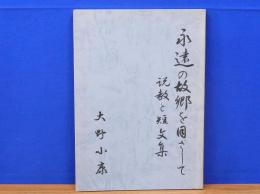 永遠の故郷を目ざして
説教と短文集
大野小康